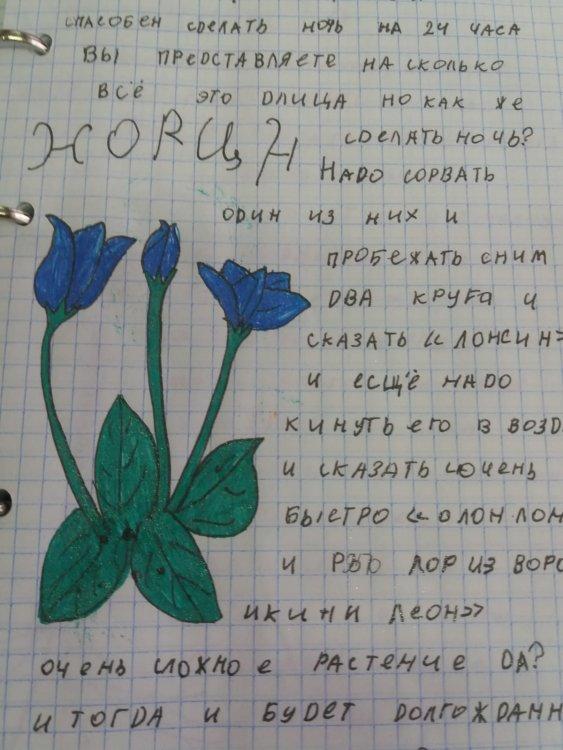 спасобен сделать ночь на 24 часа
Вы представляете на сколько
всё это длища но как же
сделать ночь?
Надо сорвать
один из них и
пробежать сним
два круга и
сказать « лонсин»
и есщё надо
кинуть его в возд
и сказать
быстро « олон лон
и лор из воро
икини леон»
очень сложное растение да?
и тогда и будет долгожданн